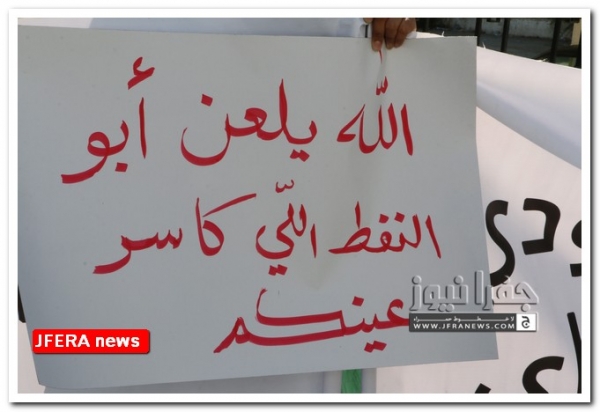 الله يلعن أبو
النفط اللّي كاسر
عينكم
جفرا نيوز
WWW.JFRANEWS.COM
JFERA news